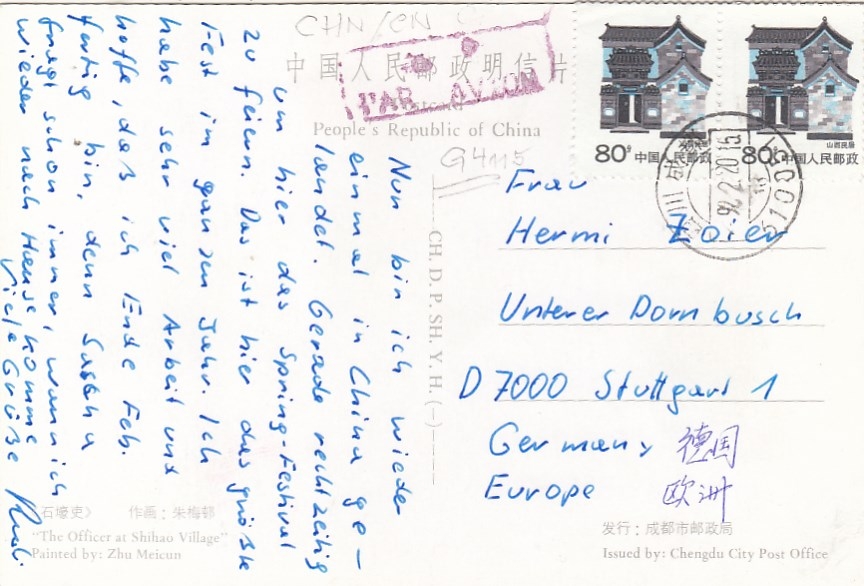 CHN/CN
中国人民邮政明信片
Postcard
People's Republic of China
PAR AVION
G4115
Nun bin ich wieder
einmal in China ge-
landet. Gerade rechtzeitig
um hier das Spring-Festival
zu feiern. Das ist hier das größte
Fest im ganzen Jahr. Ich
habe sehr viel Arbeit und
hoffe, daß ich Ende Feb.
fertig bin, denn Sascha
fragt schon immer, wann ich
wieder nach Hause komme
Viele Grüße
CH. D. P. SH. Y. H. (一)
80分 中国人民邮政
山西民居
80分 中国人民邮政
山西民居
Frau
Hermi Zoier
Unterer Dornbusch
D 7000 Stuttgart 1
Germany 德国
Europe 欧洲
《石壕吏》 作画：朱梅邨
"The Officer at Shihao Village"
Painted by: Zhu Meicun
发行：成都市邮政局
Issued by: Chengdu City Post Office